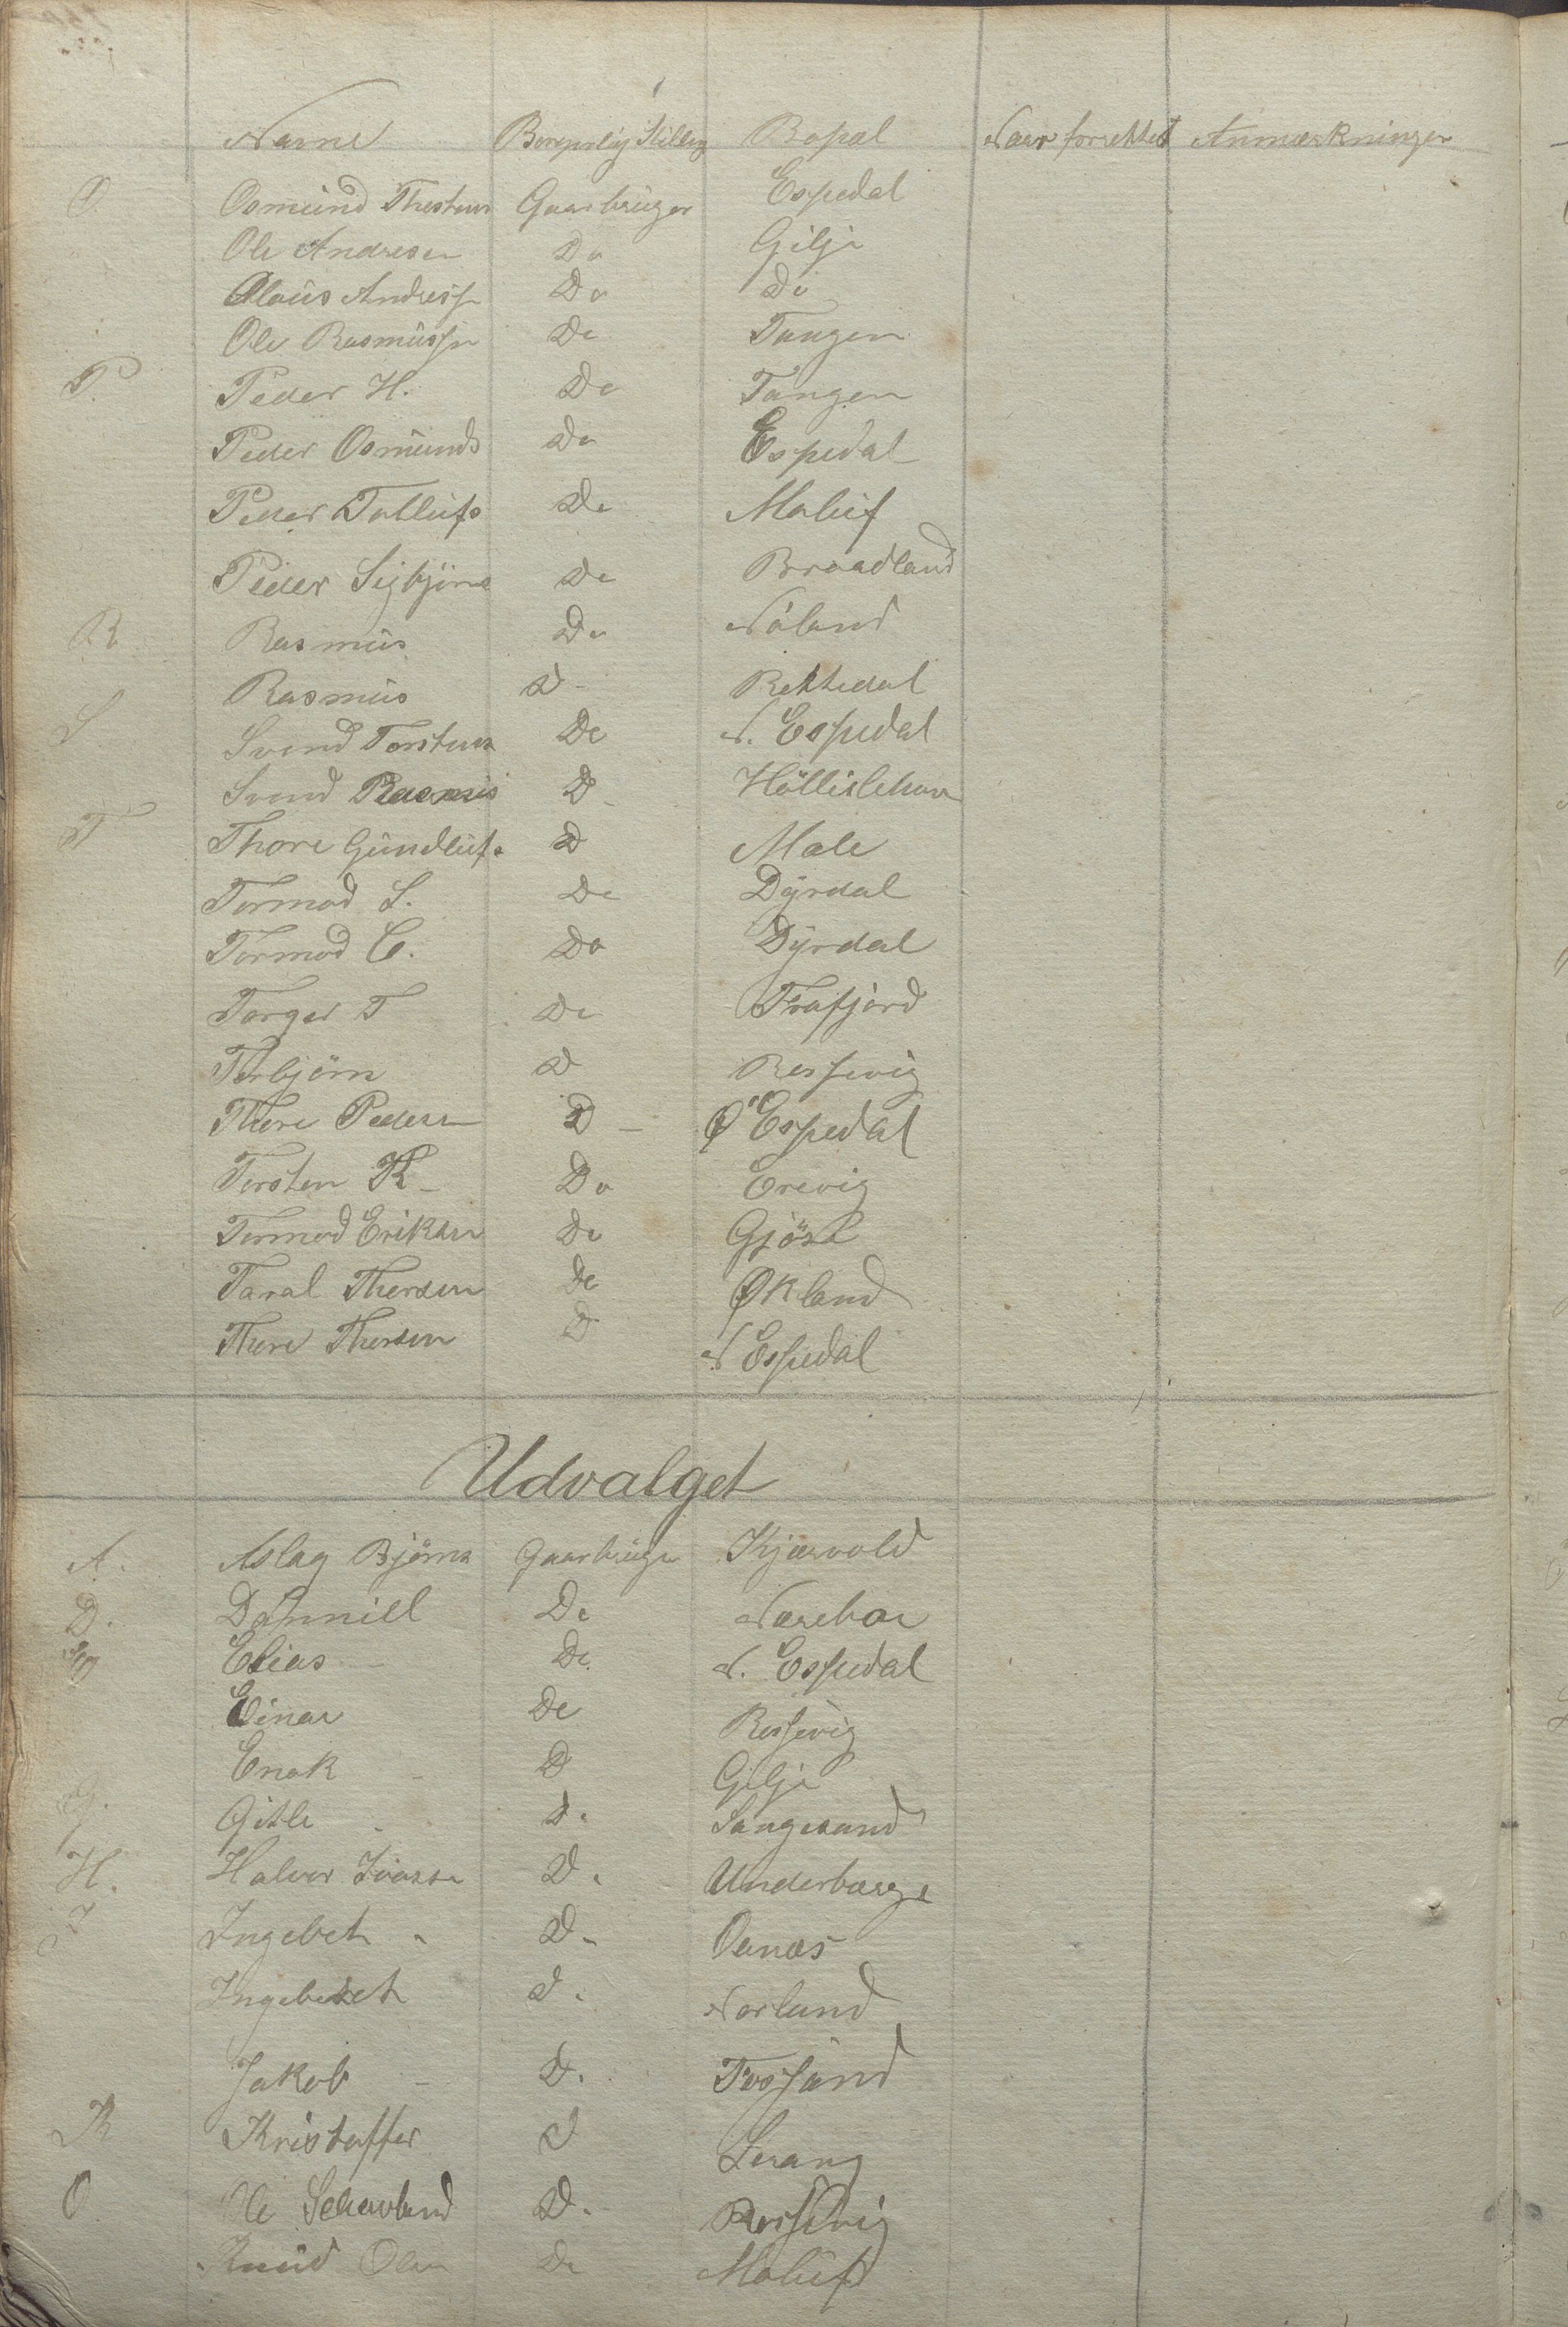 Navne Borgerlig Stilling Bopæl Naar forrettet Anmærkninger
O. Osmund Thostens Gaarbruger Espedal
Ole Andresen Do Gilje
Olaus Andress Do Do
Ole Rasmuss Do Tangen
P. Peder H. Do Tangen
Peder Osmunds Do Espedal
Peder Tollufs Do Maluf
Peder Sigbjörns Do Braadland
R Rasmus Do Nåland
Rasmus D- Rettedal
S Svend Torstens Do N. Espedal
Svend Rasmus D- Höllislihan
T Thore Gundlufs D Male
Tormod S. Do Dyrdal
Tormod C. Do Dyrdal
Torger T Do Frafjord
Torbjörn D Ressevig
Thore Pedersn D - Ø Espedal
Torsten K- Do Erevig
Tormod Eriksen Do Gjöse
Taral Thorsen Do Økland
Thore Thorsen D N Espedal
Udvalget
A. Aslag Björns Gaarbruger Kjærvold
D. Danniel Do Nærebøe
E Elias - Do N. Espedal
Einar Do Ressevig
Enok - D Gilje
G. Gitle - D. Songesand
H. Halvor Ivarsn D. Underbærge
I Ingebet - D. Oanæs
Ingebrect D. Norland
Jakob - D. Fossand
K Kristoffer D Lerang
O Ole Selevland D. Ressevig
Knud Olsn Do Maluf